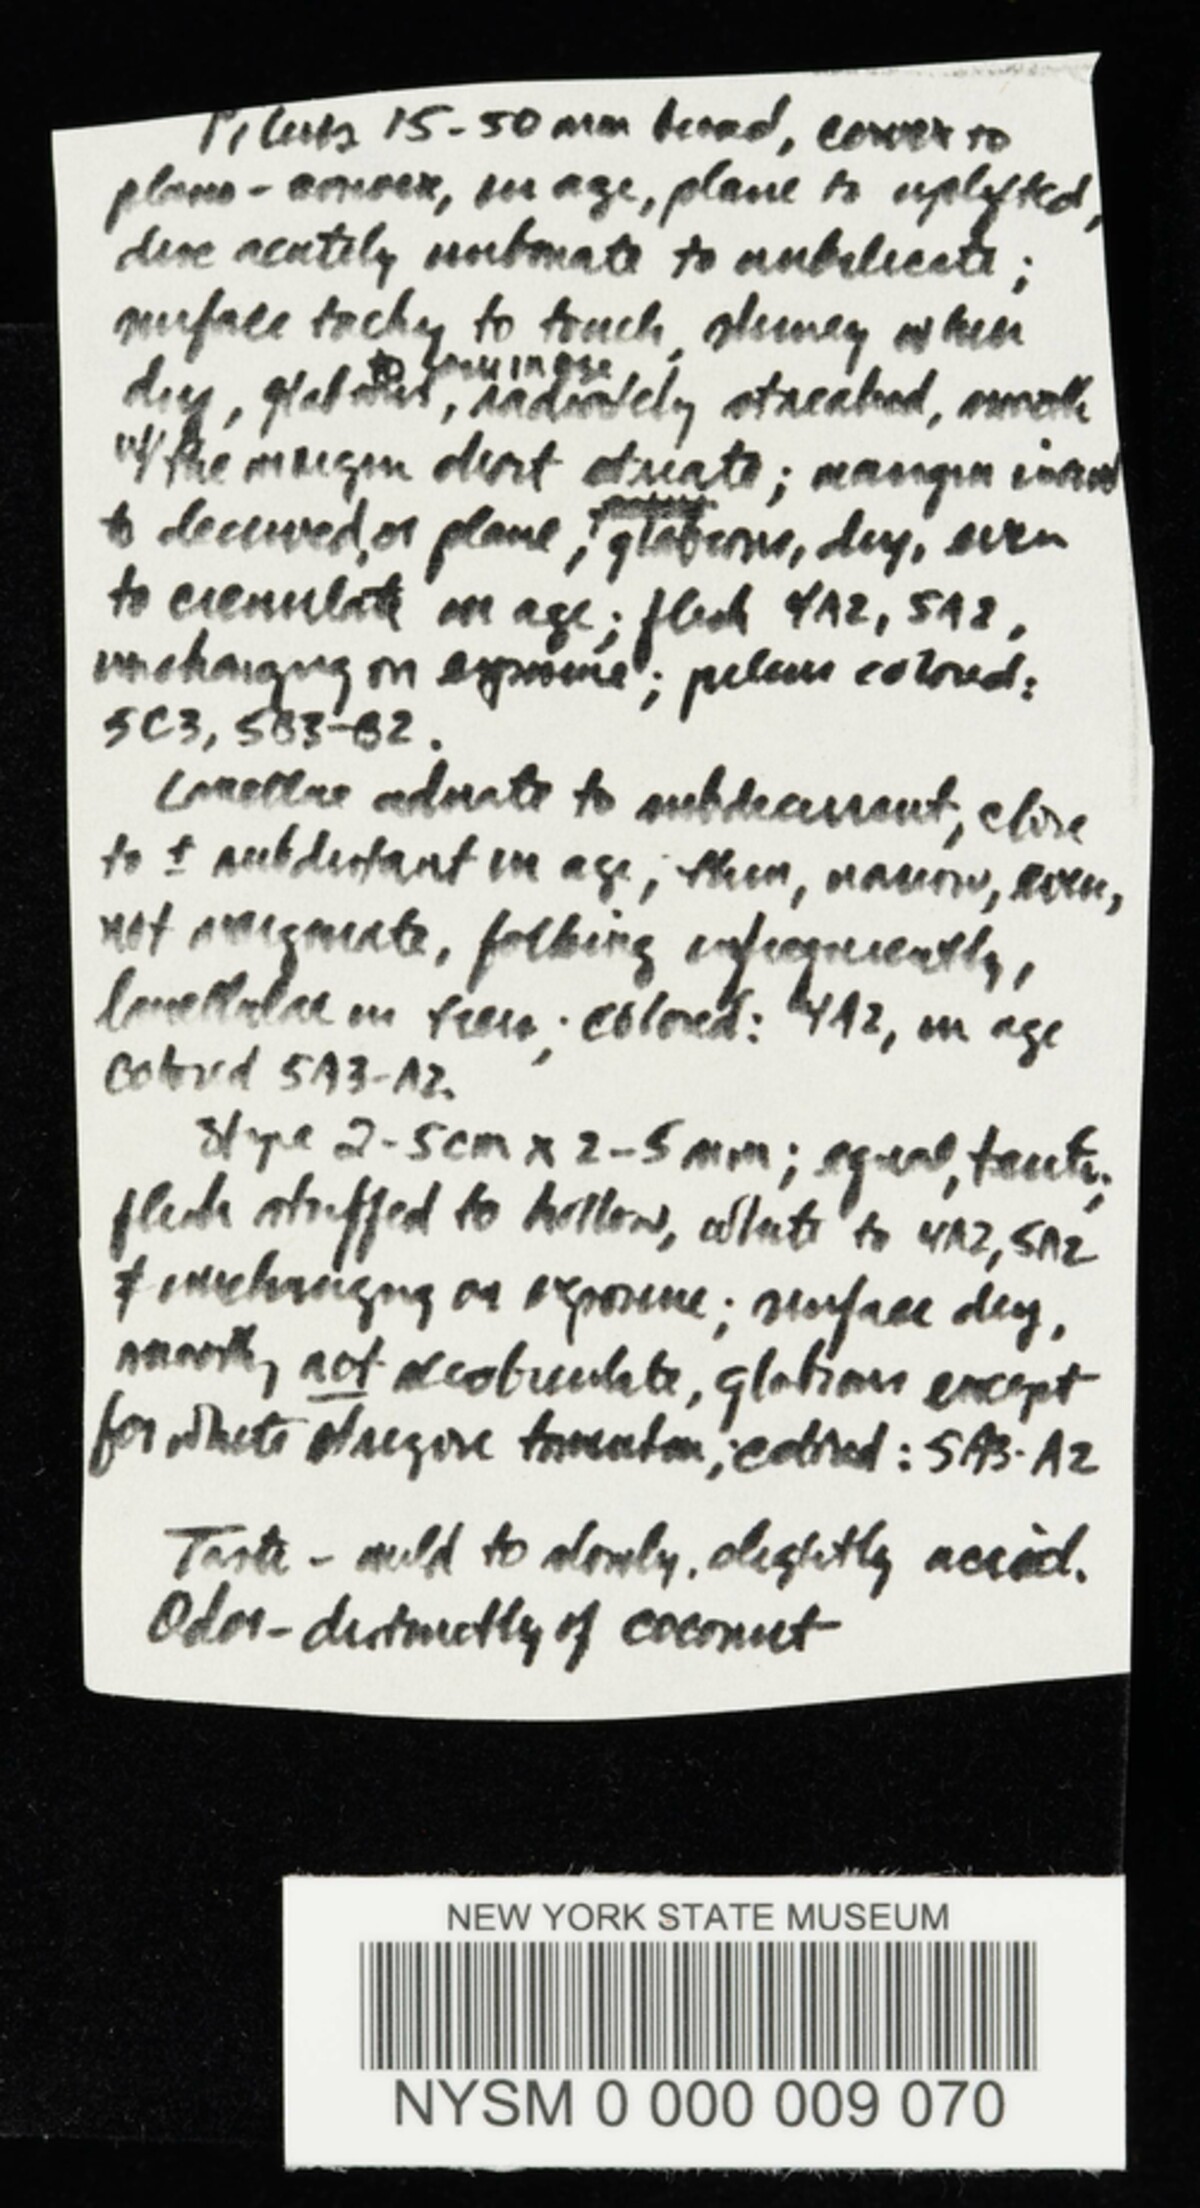 Pileus 15-50 mm broad, convex to
plano-convex, in age, plane to uplifted,
disc acutely umbonate to umbilicate;
surface tacky to touch, shiney when
to pruinose
dry, glabrous, radiately streaked, smooth
w/ the margin short striate; margin incurved
to decurved, or plane, glabrous, dry, even
to crenulate in age; flesh 4A2, 5A2,
unchanging on exposure; pileus colored:
5C3, 5B3-B2.
Lamellae adnate to subdecurrent, close
to ± subdistant in age, thin, narrow, even,
not marginate, forking infrequently,
lamellulae in tiers; colored: 4A2, in age
colored 5A3-A2.
Stipe 2-5cm x 2-5 mm; equal, terete;
flesh stuffed to hollow, white to 4A2, 5A2
& unchanging on exposure; surface dry,
smooth, not scrobiculate, glabrous except
for white strigose tomentum; colored: 5A3-A2
Taste - mild to slowly, slightly acrid.
Odor - distinctly of coconut
NEW YORK STATE MUSEUM
NYSM 0 000 009 070